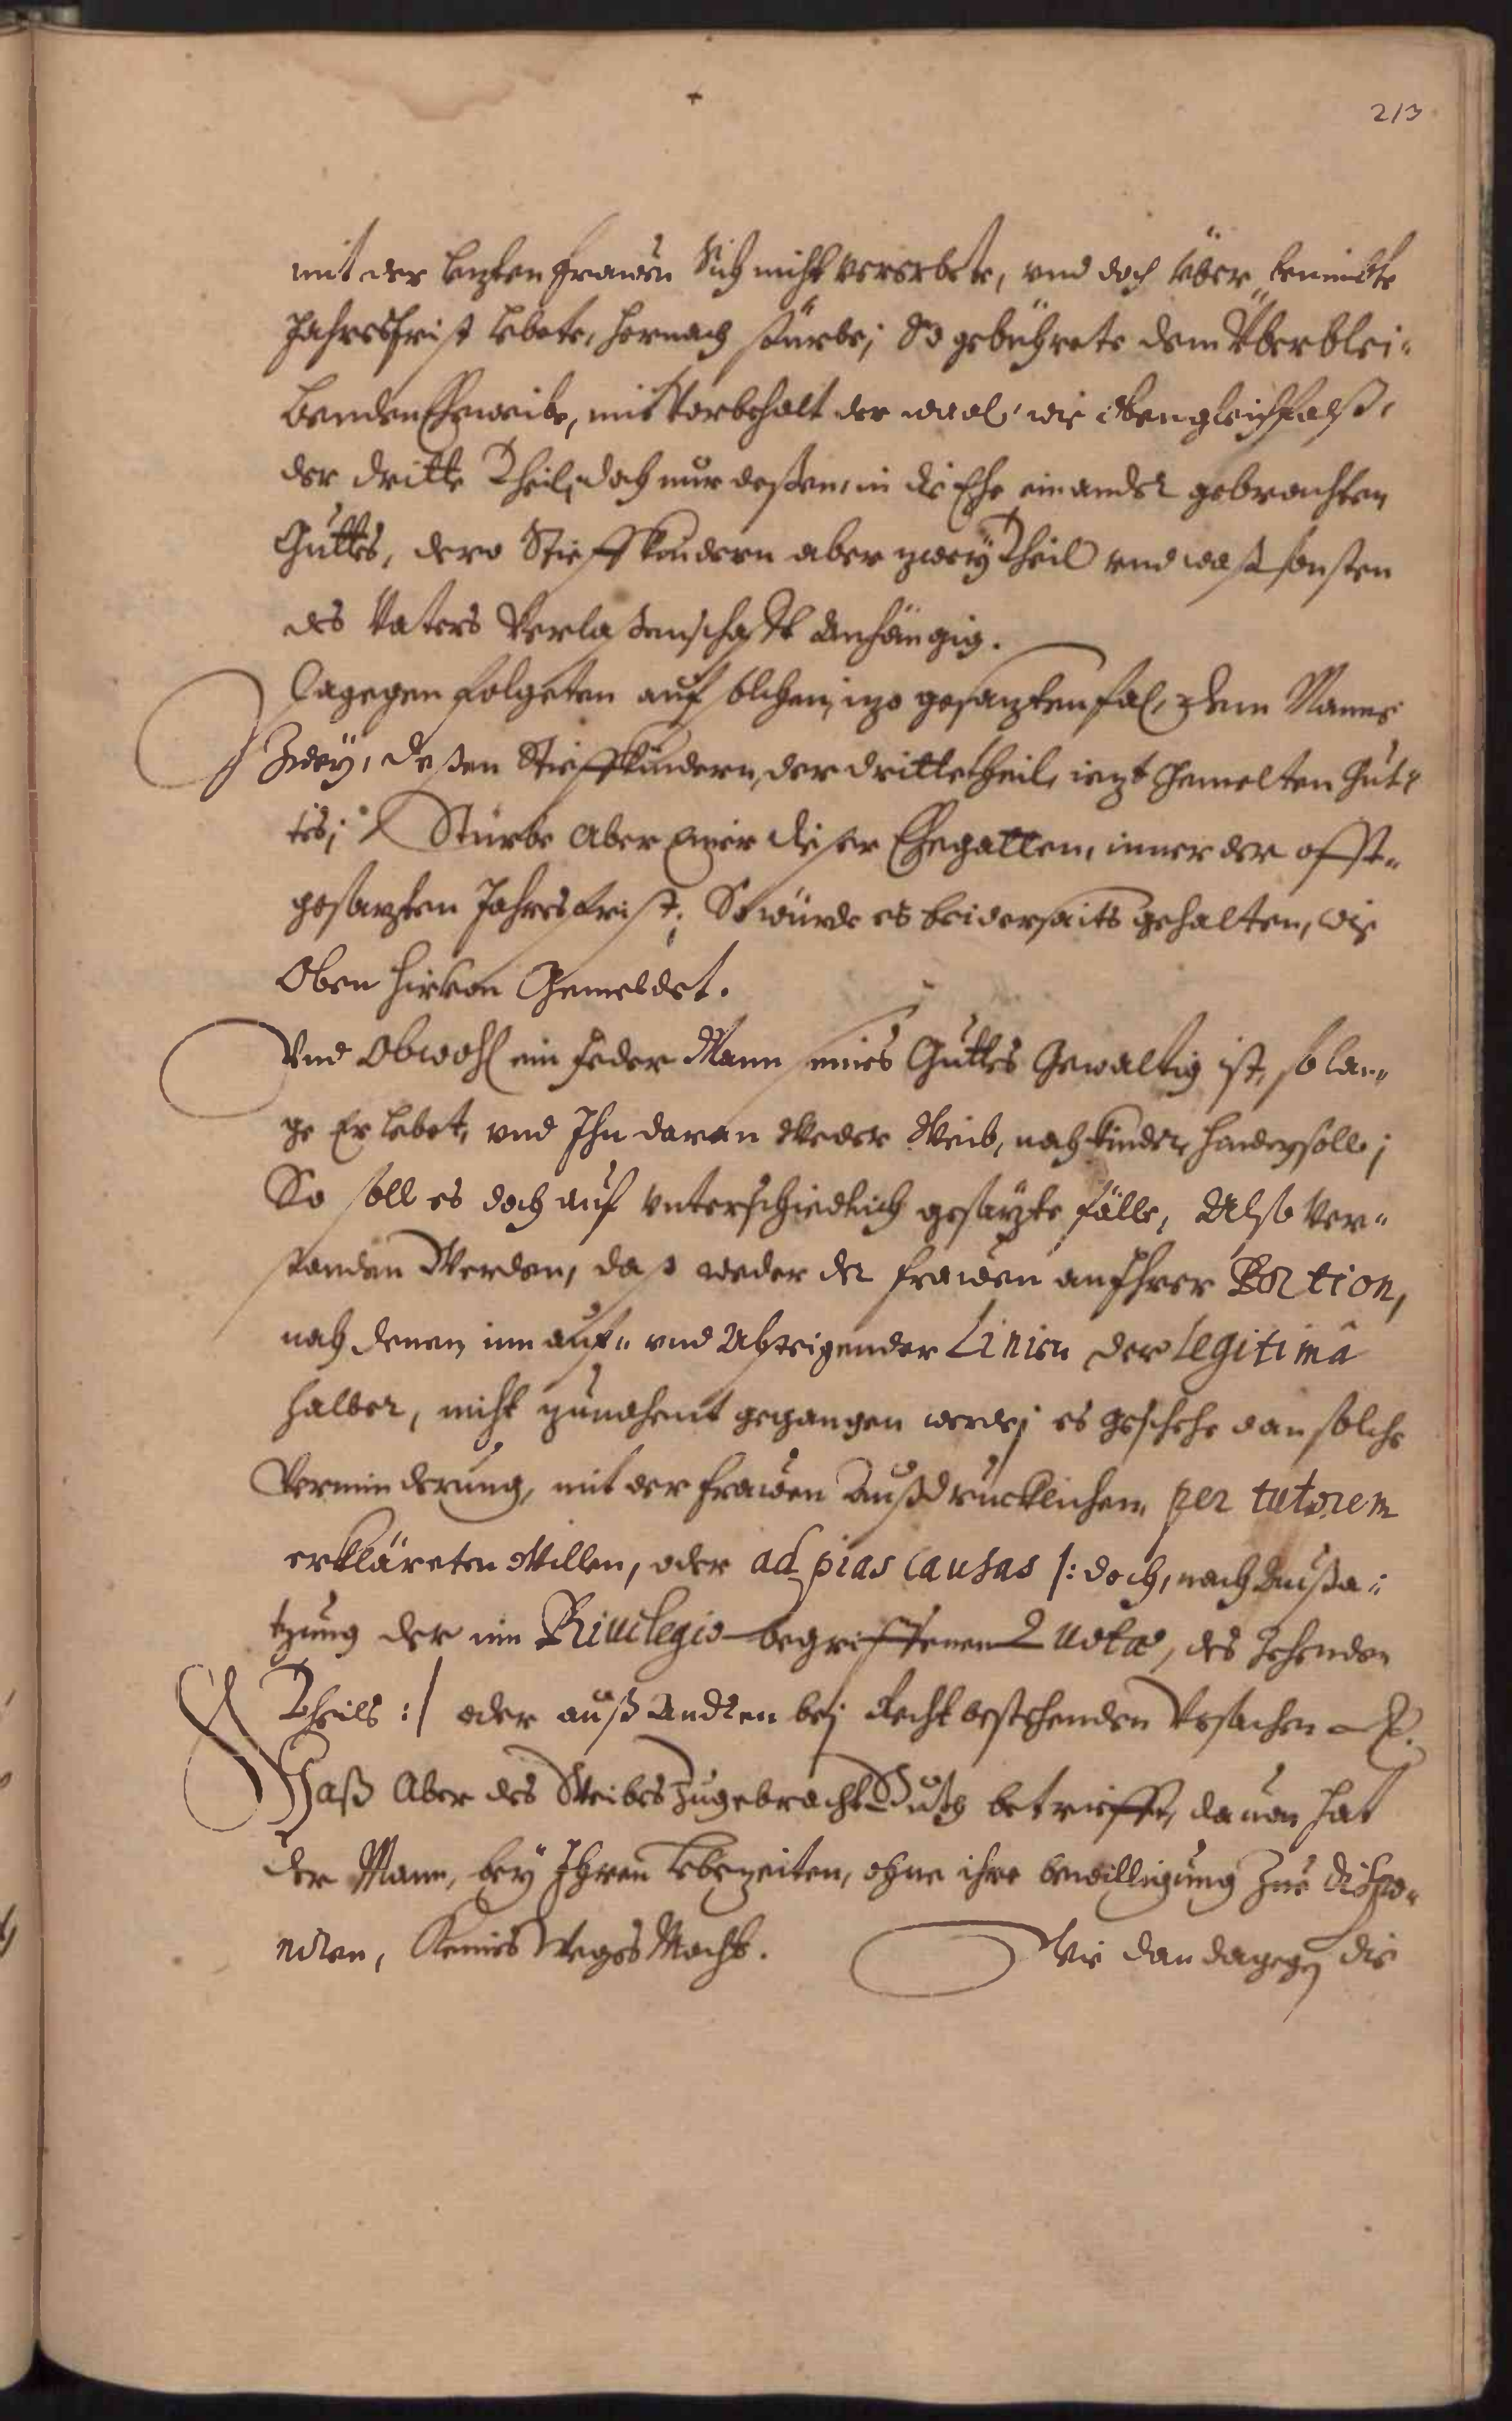 213
mit der lezten frawen Sich nicht vererbete, vnd doch über benimbte
Jahresfrist lebete, hernach stürbe; So gebührete dem Überblei-
benden Eheweibe, mit Vorbehalt der wahl, wie eben gleichfalß,
der dritte Theil, doch nur deßen, in die Ehe einander gebrachten
Guttes, dero Stieffkindern aber zweÿ Theil vnd waß sonsten
des Vaters Verlaßenschafft anhängig.
Dagegen folgeten auf solchen, izo gesazten fal, dem Manne
Zweÿ, deßen Stieffkindern, der dritte theil, iezt gemelten Gut-
tes; Stürbe Aber einer dieser Ehegatten, inner der offt-
gesazten Jahresfrist; So würde es beiderseits gehalten, wie
Oben hieruon Gemeldet.
Vnd Obwohl ein Jeder Mann seines Guttes Gewaltig ist, so lan-
ge Er lebet, vnd Ihn daran Weder Weib, noch kinder, hindern solle;
So soll es doch auf vnterschiedlich gesazte fälle, Also Ver-
standen Werden, daß weder der frawen an Ihrer Portion,
noch denen inn auf- vnd Absteigender Linien der legitimâ
halber, nicht zunahent gegangen werde; es geschehe dan solche
Verminderung, mit der frawen Außdrucklichen, per tutorem
erkläreten Willen, oder ad pias causas /: doch, nach Außsa-
tzung der im Priuilegio begriffenen Quotæ, des Zehenden
Theils :/ oder auß Andren bej Recht bestehenden Vrsachen
Waß Aber des Weibes Zugebracht Gutt betrieffe, dauon hat
der Mann, beÿ Ihren lebezeiten, ohne ihre bewilligung Zue dispo-
niren, Keines Weges Macht. Wie dan dagegen die